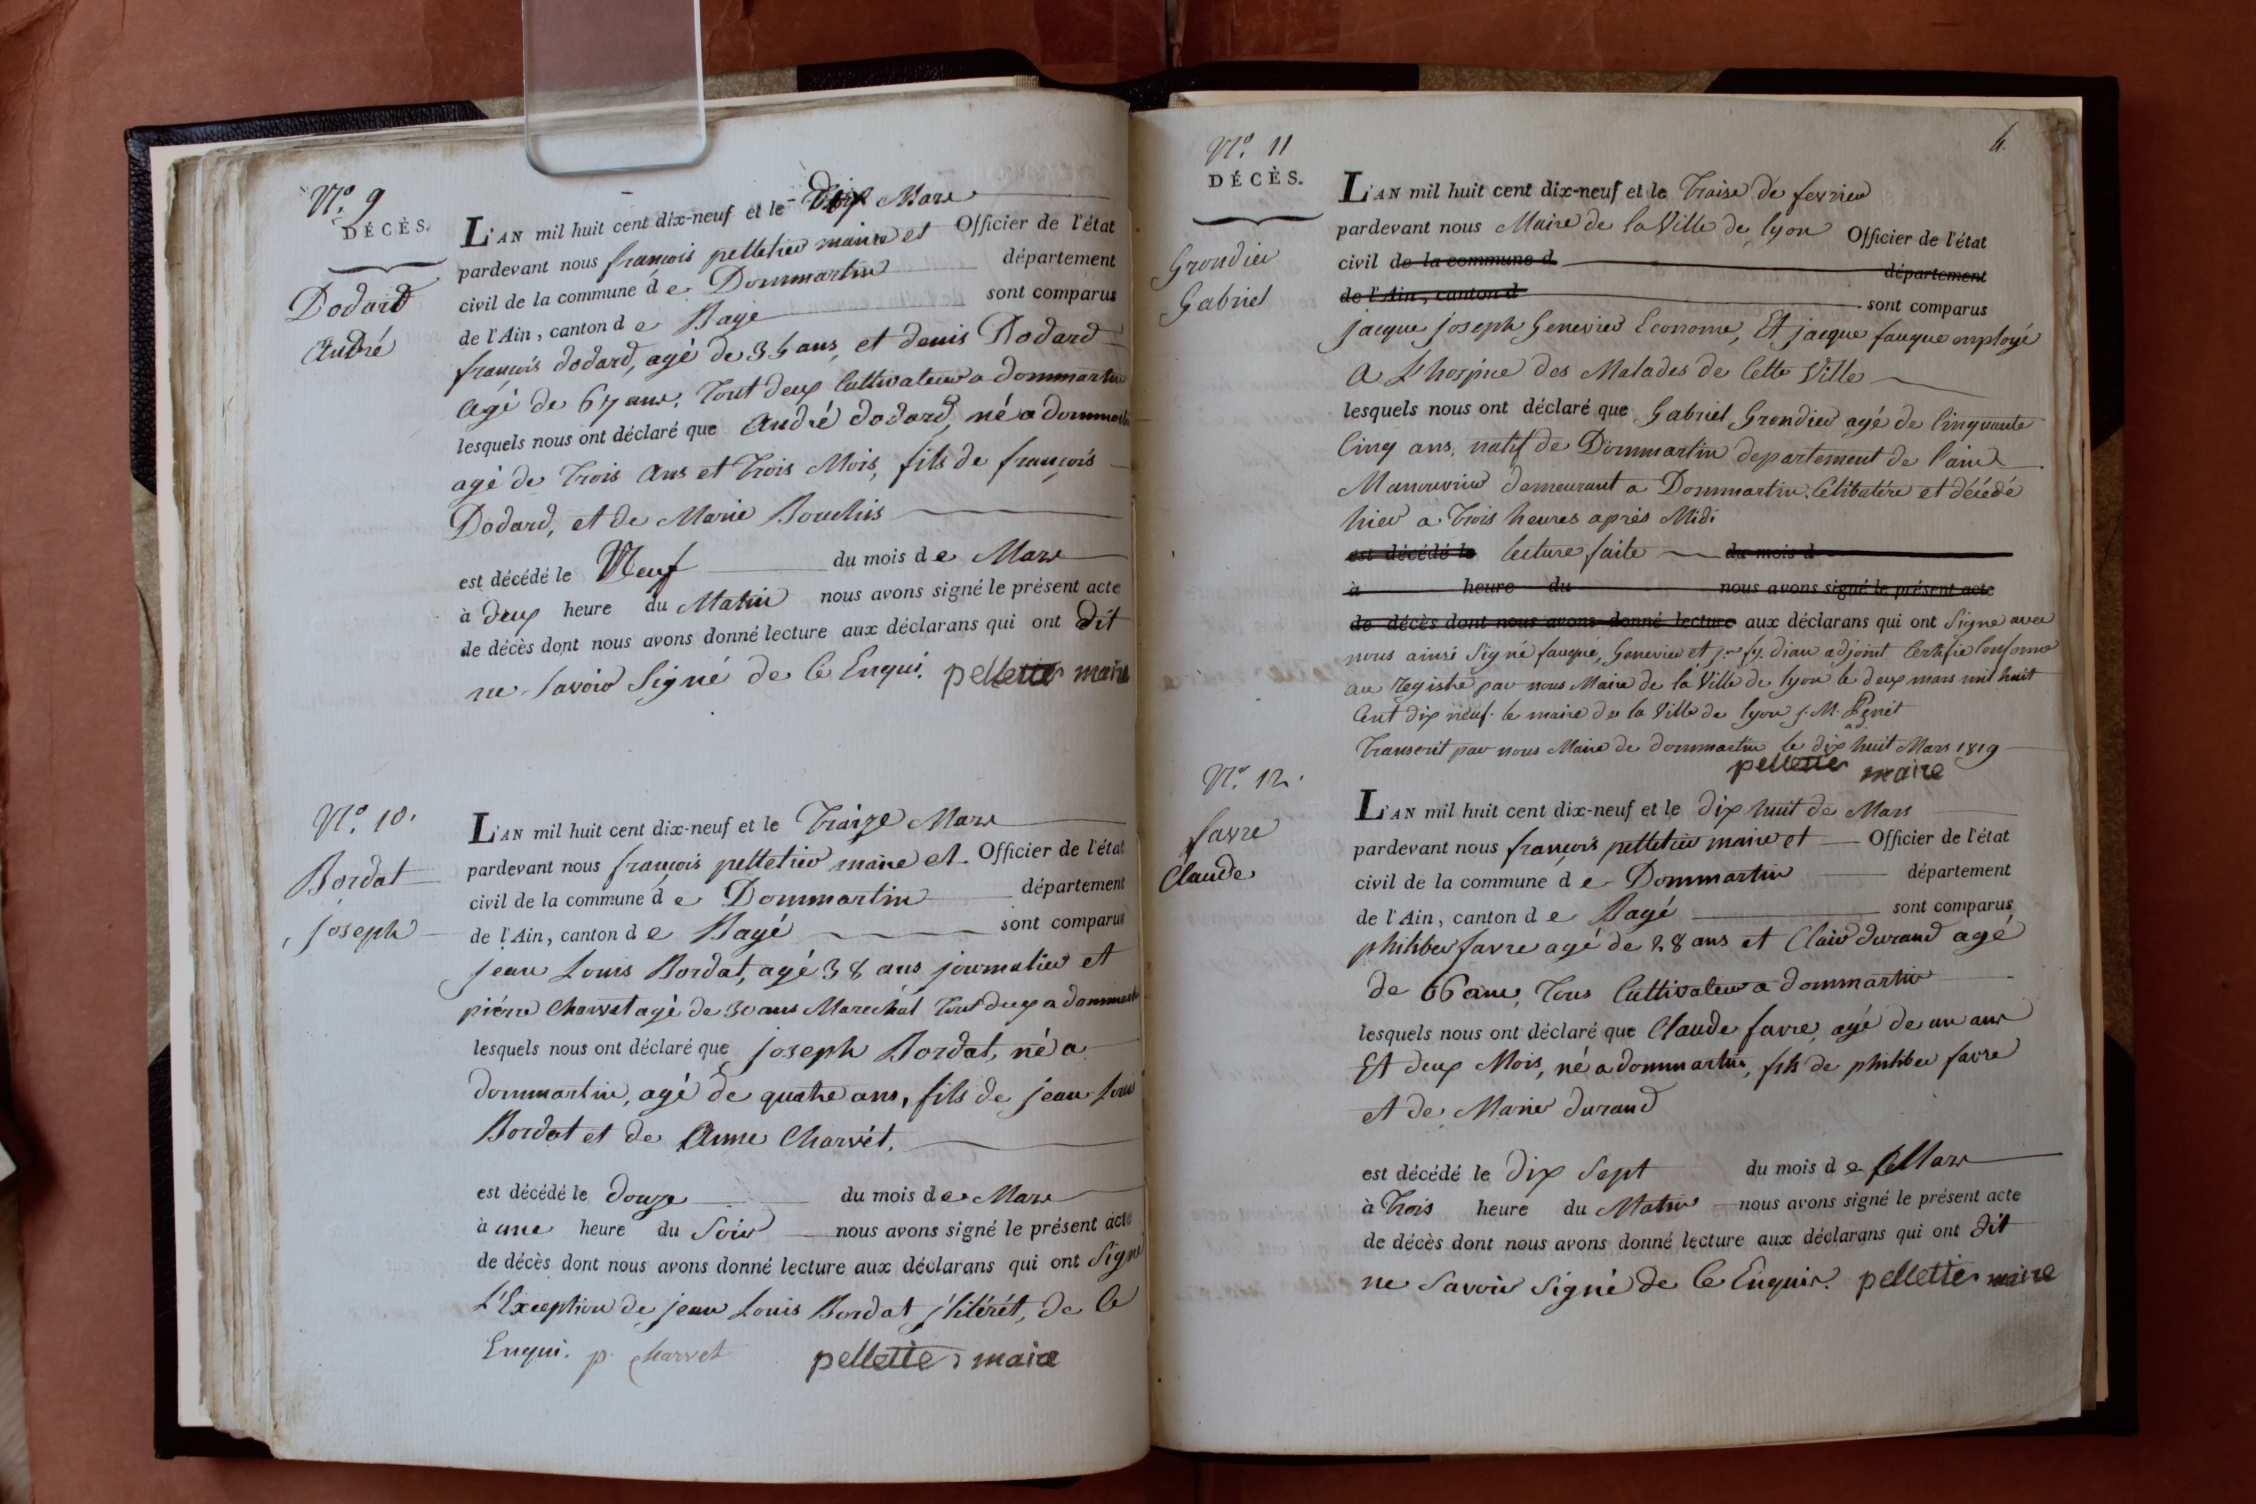 N.o 9
DÉCÈS.
Dodard
André
L'AN mil huit cent dix-neuf et le dix Mars
pardevant nous françois pelletier maire et Officier de l'état
civil de la commune de Dommartin département
de l'Ain, canton de Bagé sont comparus
françois dodard, agé de 34 ans, et denis Dodard
agé de 67 ans. tout deux Cultivateur a dommartin
lesquels nous ont déclaré que André dodard, né a dommartin
agé de trois ans et trois Mois, fils de françois
Dodard, et de Marie Bouchis
est décédé le Neuf du mois de Mars
à deux heure du Matin nous avons signé le présent acte
de décès dont nous avons donné lecture aux déclarans qui ont dit
ne savoir Signé de Ce Enqui. pelletier maire
N.o 10.
Bordat
joseph
L'AN mil huit cent dix-neuf et le traize Mars
pardevant nous françois pelletier maire et Officier de l'état
civil de la commune de Dommartin département
de l'Ain, canton de Bagé sont comparus
jean Louis Bordat, agé 38 ans journalier et
piérre Charvet agé de 30 ans Marechal tout deux a dommartin
lesquels nous ont déclaré que joseph Bordat, né a
dommartin, agé de quatre ans, fils de jean Louis
Bordat et de Anne Charvét.
est décédé le douze du mois de Mars
à une heure du Soir nous avons signé le présent acte
de décès dont nous avons donné lecture aux déclarans qui ont Signé
L'Exception de jean Louis Bordat j'litérét, de Ce
Enqui. p. Charvet pelletier maire
4.
N.o 11
DÉCÈS.
Grondier
Gabriel
L'AN mil huit cent dix-neuf et le traise de fevrier
pardevant nous Maire de la Ville de lyon Officier de l'état
civil de la commune d département
de l'Ain, canton d sont comparus
jacque joseph Genevier Econome, Et jacque fauque employé
a L'hospice des Malades de Cette Ville
lesquels nous ont déclaré que Gabriel Grondier agé de Cinquante
Cinq ans, natif de Dommartin departement de l'ain
Manouvrier demeurant a Dommartin. Célibatére et décédé
hier a trois heures aprés Midi
est décédé le lecture faite du mois d
à heure du nous avons signé le présent acte
de décès dont nous avons donné lecture aux déclarans qui ont Signe avec
nous ainsi Signé fauque, Genevier et adjoint Certifie Conforme
au registre par nous Maire de la Ville de lyon le deux mars mil huit
Cent dix neuf. le maire de la Ville de lyon
transcrit par nous Maire de dommartin le dix huit Mars 1819
pelletier maire
N.o 12.
favre
Claude
L'AN mil huit cent dix-neuf et le dix huit de Mars
pardevant nous françois pelletier maire et Officier de l'état
civil de la commune de Dommartin département
de l'Ain, canton de Bagé sont comparus
philiber favre agé de 28 ans et Clair durand agé
de 66 ans, tous Cultivateur a dommartin
lesquels nous ont déclaré que Claude favre, agé de un ans
Et deux Mois, né a dommartin, fils de philiber favre
et de Marie durand
est décédé le dix Sept du mois de Mars
à trois heure du Matin nous avons signé le présent acte
de décès dont nous avons donné lecture aux déclarans qui ont dit
ne savoir signé de Ce Enquis. pelletier maire